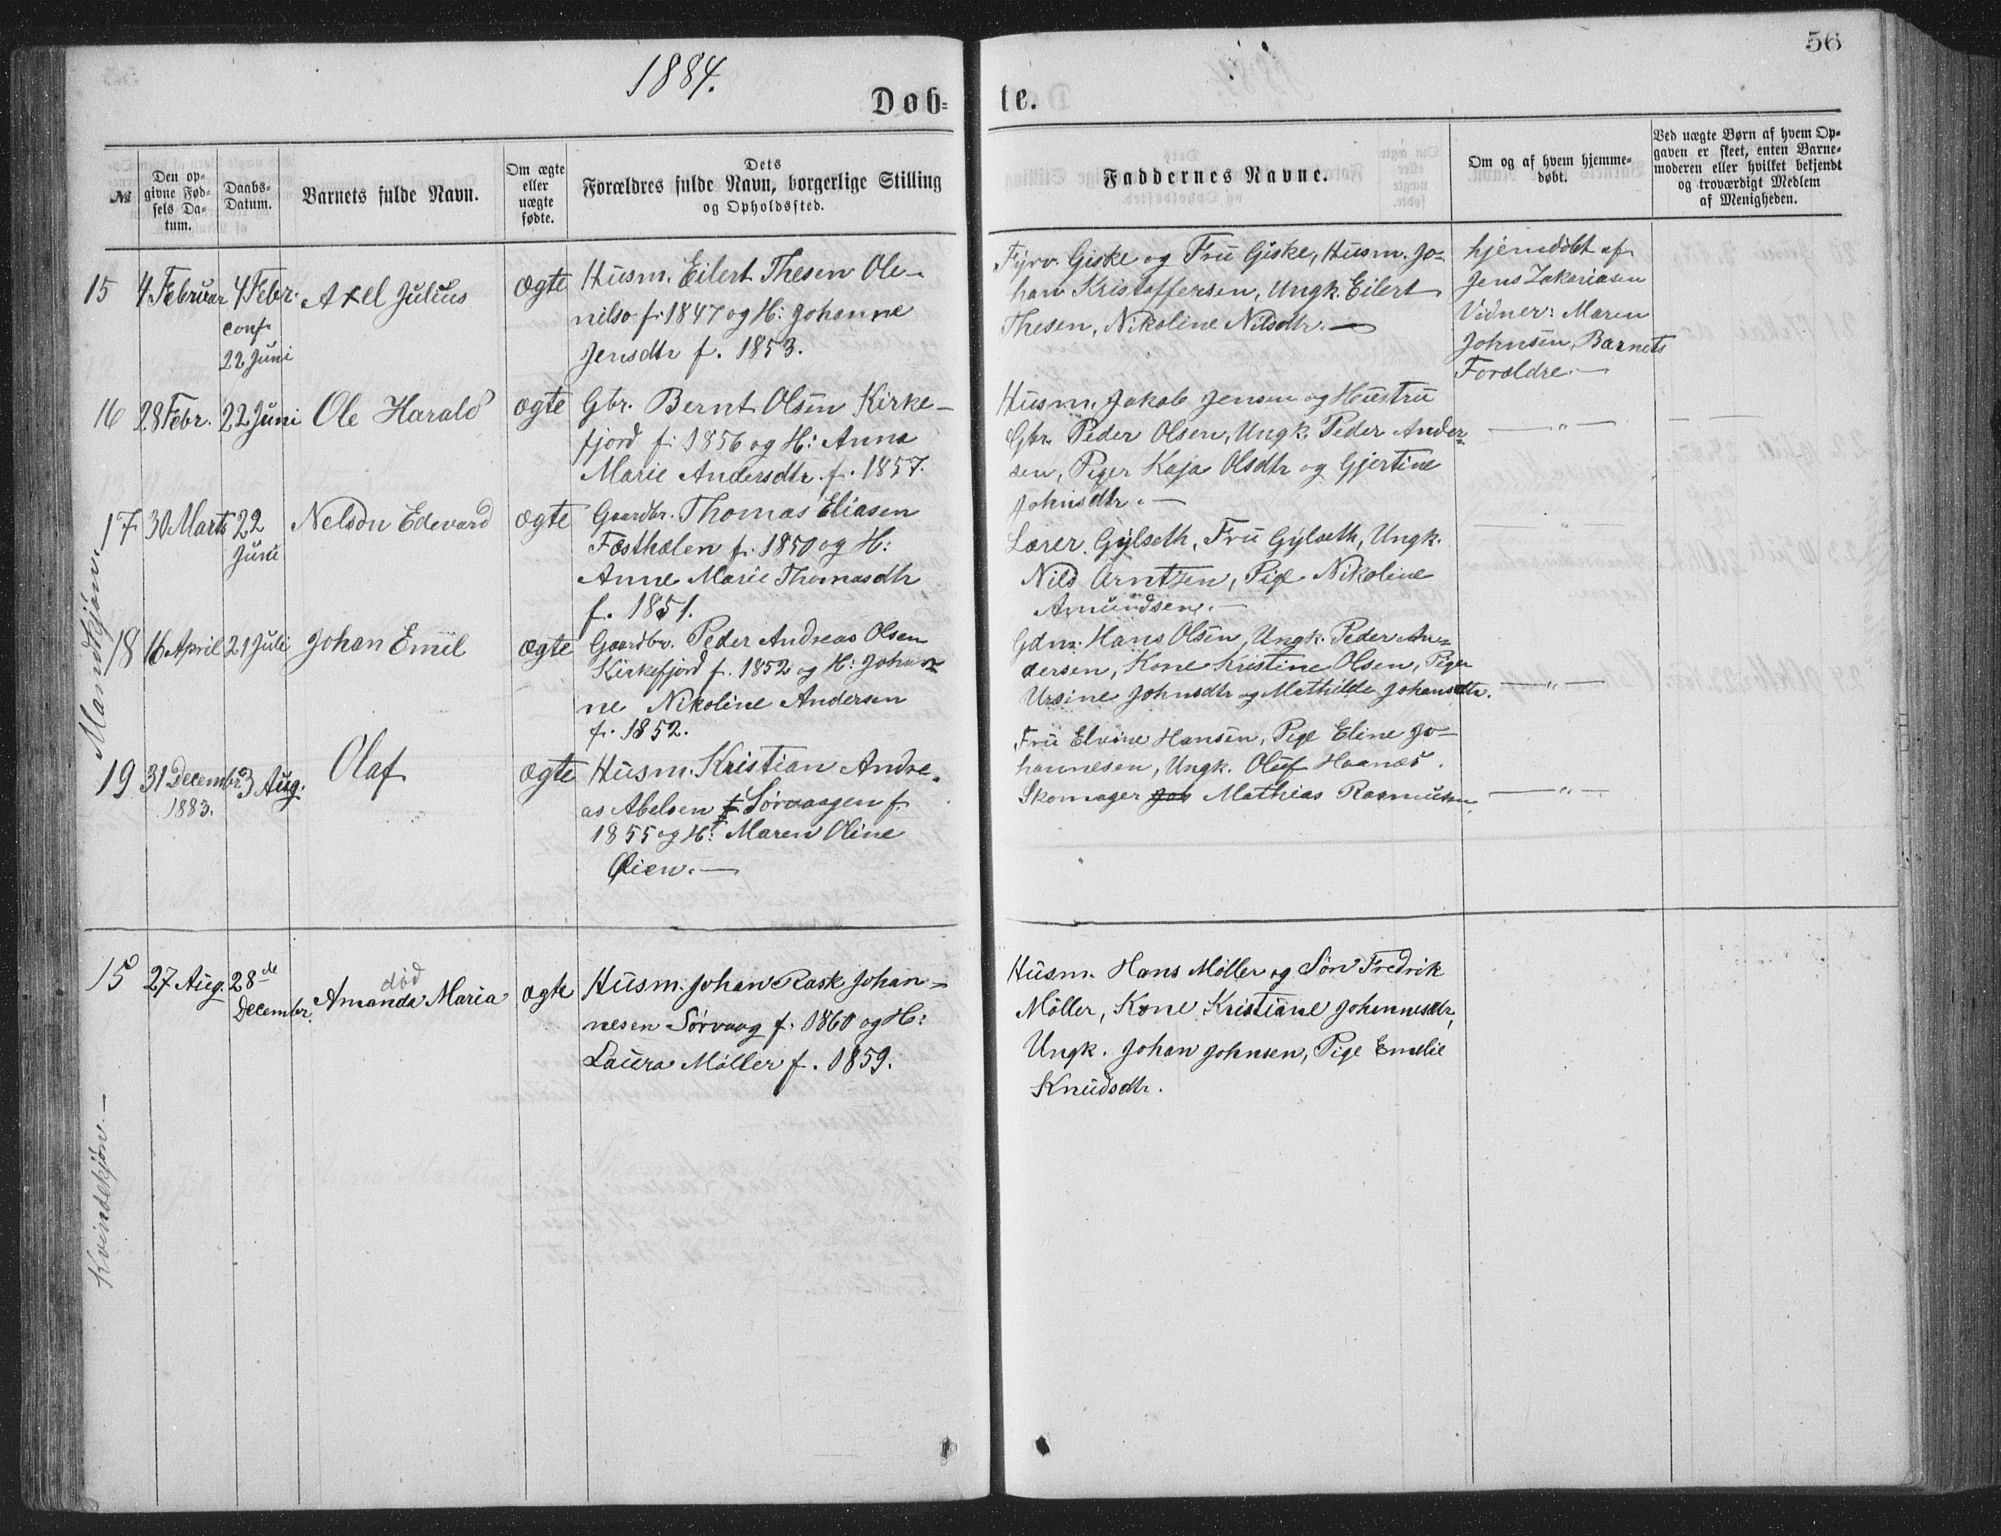 1884.
56
Døb-
te.
№
Den op-
givne Fød-
sels Da-
tum.
Daabs-
Datum.
Barnets fulde Navn.
Om ægte
eller
uægte
fødte.
Dets
Forældres fulde Navn, borgerlige Stilling
og Opholdssted.
Faddernes Navne.
Om og af hvem hjemme-
døbt.
Ved uægte Børn af hvem Op-
gaven er skeet, enten Barne-
moderen eller hvilket bekjendt
og troværdigt Medlem
af Menigheden.
Mandkjøn.
15
4 Februar
4 Febr.
conf.
22 Juni
Axel Julius
ægte
Husm. Eilert Thesen Ole-
nilsø f. 1847 og H: Johanne
Jensdtr f. 1853.
Fyrv. Giske og Fru Giske, Husm. Jo-
han Kristoffersen, Ungk. Eilert
Thesen, Nikoline Nilsdtr. —
hjemdøbt af
Jens Zakariasen
Vidner: Maren
Johnsen, Barnets
Forældre. —
16
28 Febr.
22 Juni
Ole Harald
ægte
Gbr. Bernt Olsen Kirke-
fjord f. 1856 og H: Anna
Marie Andersdtr. f. 1857.
Husm. Jakob Jensen og Hustru
Gbr. Peder Olsen, Ungk. Peder Ander-
sen, Piger Kaja Olsdtr og Gjertine
Johnsdtr. —
— " —
17
30 Marts
22
Juni
Nelson Edevard
ægte
Gaardbr. Thomas Eliasen
Fæsthælen f. 1850 og H:
Anne Marie Thomasdtr
f. 1851.
Lærer Gylseth, Fru Gylseth, Ungk.
Nils Arntzen, Pige Nikoline
Amundsen. —
— " —
18
16 April
21 Juli
Johan Emil
ægte
Gaardbr. Peder Andreas Olsen
Kirkefjord f. 1852 og H: Johan-
ne Nikoline Andersen
f. 1852.
Gdm. Hans Olsen, Ungk. Peder An-
dersen, Kone Kristine Olsen, Piger
Ursine Johnsdtr og Mathilde Johansdtr.
— " —
19
31 Decembr.
1883.
3 Aug.
Olaf
ægte
Husm. Kristian Andre-
as Abelsen Sørvaagen f.
1855 og H: Maren Oline
Øien. —
Fru Elvine Hansen, Pige Eline Jo-
hannesen, Ungk. Oluf Haanes.
Skomager Joh Mathias Rasmusen.
— " —
Kvindekjøn. —
15
27 Aug.
28de
Decembr.
død
Amanda Maria
ægte
Husm. Johan Rask Johan-
nesen Sørvaag f. 1860 og H:
Laura Møller f. 1859.
Husm. Hans Møller og Søn Fredrik
Møller, Kone Kristiane Johannesdtr,
Ungk. Johan Johnsen, Pige Emelie
Knudsdtr.